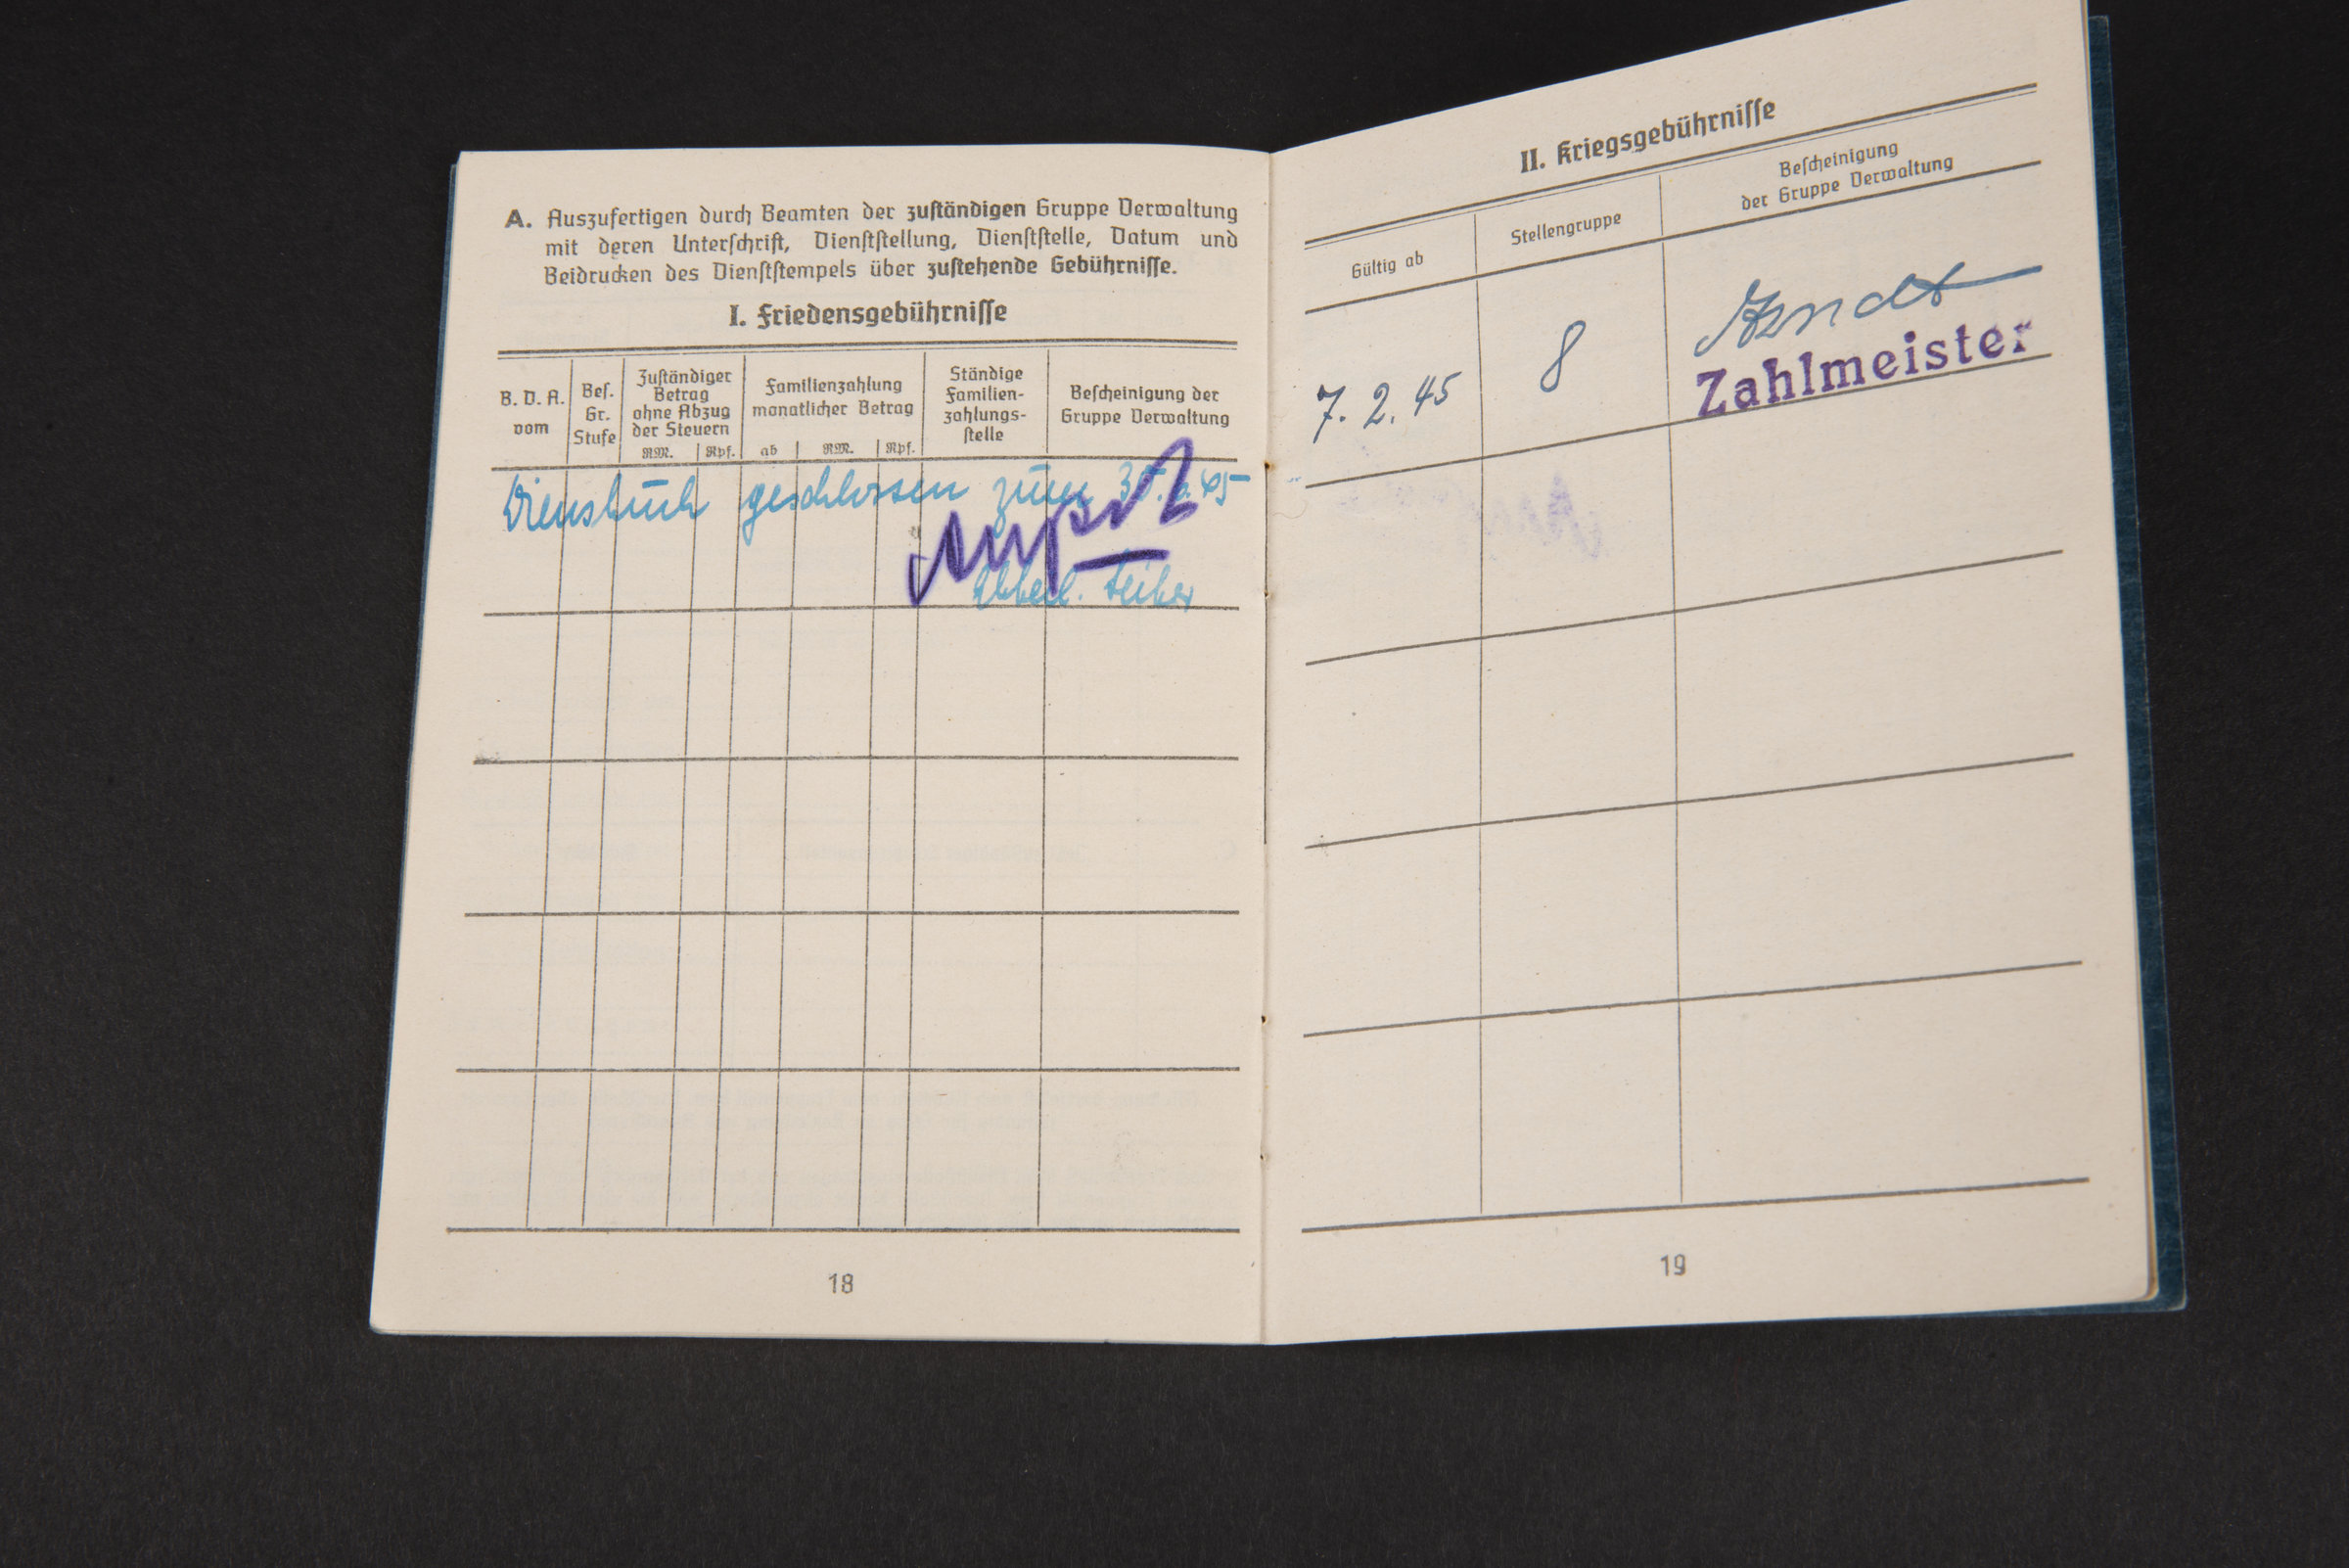 A. Auszufertigen durch Beamten der zuſtändigen Gruppe Verwaltung
mit deren Unterſchrift, Dienſtſtellung, Dienſtſtelle, Datum und
Beidrucken des Dienſtſtempels über zuſtehende Gebührniſſe.
I. Friedensgebührniſſe
B. D. A. vom
Beſ. Gr. Stufe
Zuſtändiger Betrag ohne Abzug der Steuern
RM. Rpf.
Familienzahlung monatlicher Betrag
ab RM. Rpf.
Ständige Familien-zahlungs-ſtelle
Beſcheinigung der Gruppe Verwaltung
geschlossen zum
18
II. Kriegsgebührniſſe
Gültig ab
Stellengruppe
Beſcheinigung
der Gruppe Verwaltung
7. 2. 45 8 Arndt
Zahlmeister
19